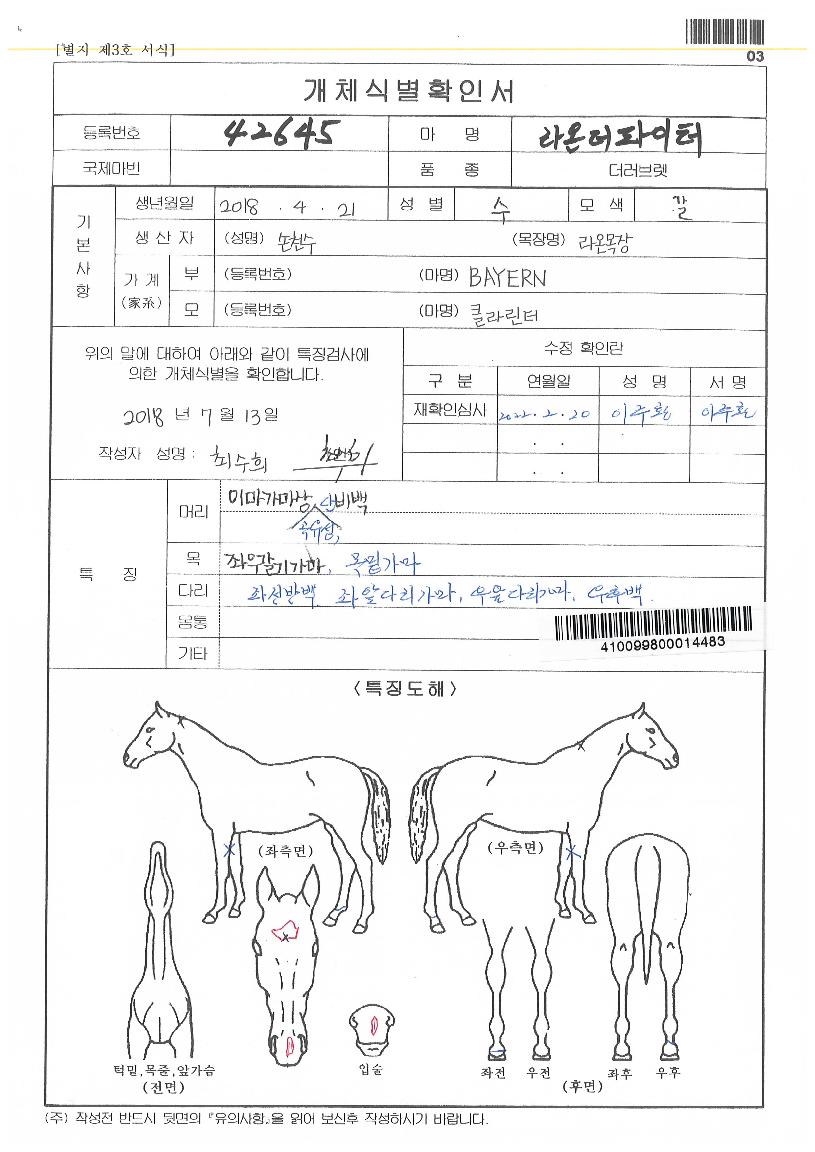 [별지 제3호 서식]
03
개체식별확인서
등록번호 42645 마 명 라온더파이터
국제마번 품 종 더러브렛
기본사항
생년월일 2018 . 4 . 21 성 별 수 모 색 갈
생 산 자 (성명) 손천수 (목장명) 라온목장
가 계 (家系) 부 (등록번호) (마명) BAYERN
모 (등록번호) (마명) 클라린더
위의 말에 대하여 아래와 같이 특징검사에
의한 개체식별을 확인합니다.
2018 년 7 월 13 일
작성자 성명 : 최수희
수정 확인란
구 분 연월일 성 명 서 명
재확인심사 2022 . 2 . 20
. .
. .
특 징
머리 이마가마상 단비백
곡유성,
목 좌우갈기가마, 목밑가마
다리 좌전반백, 좌앞다리가마, 우앞다리가마, 우후백.
몸통
기타
410099800014483
<특징도해>
(좌측면) (우측면)
턱밑,목줄,앞가슴
(전면)
입술
좌전 우전 좌후 우후
(후면)
(주) 작성전 반드시 뒷면의 『유의사항』을 읽어 보신후 작성하시기 바랍니다.